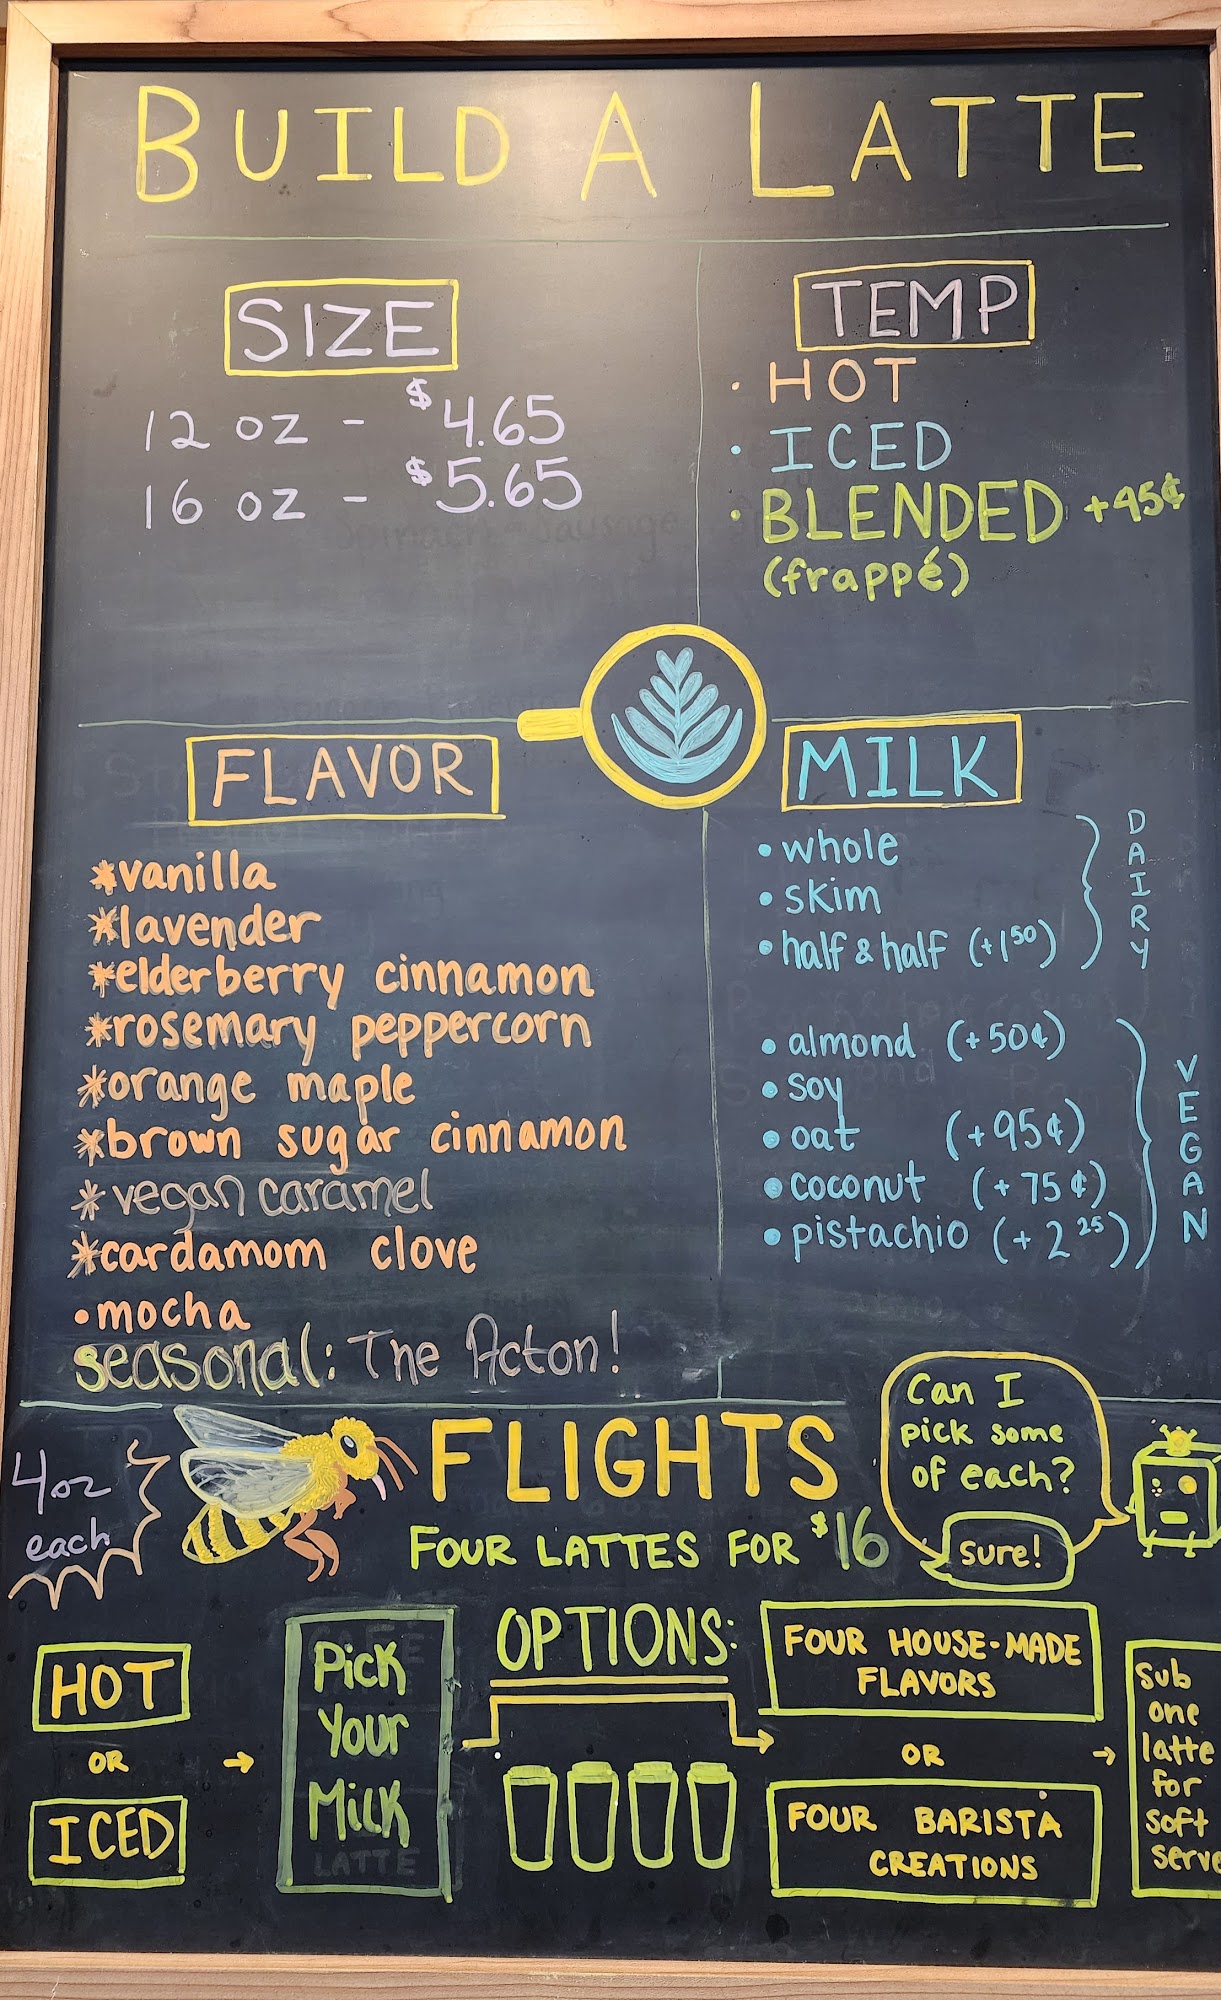 BUILD A LATTE
SIZE
12 oz - $4.65
16 oz - $5.65
TEMP
• HOT
• ICED
• BLENDED +95¢
(frappé)
FLAVOR
*vanilla
*lavender
*elderberry cinnamon
*rosemary peppercorn
*orange maple
*brown sugar cinnamon
*vegan caramel
*cardamom clove
•mocha
seasonal: The Acton!
MILK
• whole
• skim
• half & half (+1⁵⁰)
DAIRY
• almond (+50¢)
• soy
• oat (+95¢)
• coconut (+75¢)
• pistachio (+2²⁵)
VEGAN
4oz
each
FLIGHTS
FOUR LATTES FOR $16
Can I
pick some
of each?
sure!
HOT
OR
ICED
Pick
Your
Milk
LATTE
OPTIONS:
FOUR HOUSE-MADE
FLAVORS
OR
FOUR BARISTA
CREATIONS
sub
one
latte
for
soft
serve